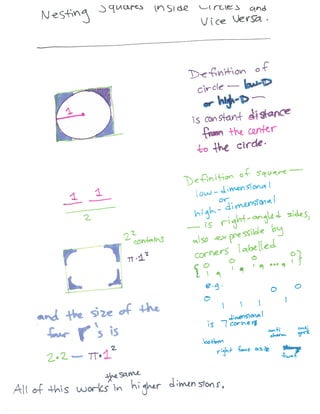 Nesting Squares Inside Circles and
Vice Versa.
1
Definition of
circle — low-D
or high-D —
is constant distance
from the center
to the circle.
1 1
2
Definition of square —
low-dimensional
or
high-dimensional
— is right-angled sides,
also expressible by
corners labelled
{ 0 0 0 0 }
1, 1, 1, ..., 1
e.g.
0 0
0 1 1 1 1
is 7 dimensional
corners
bottom
right four aside
2² contains
π·1²
and the size of the
four r's is
2·2 — π·1²
the same
All of this works in higher dimensions.